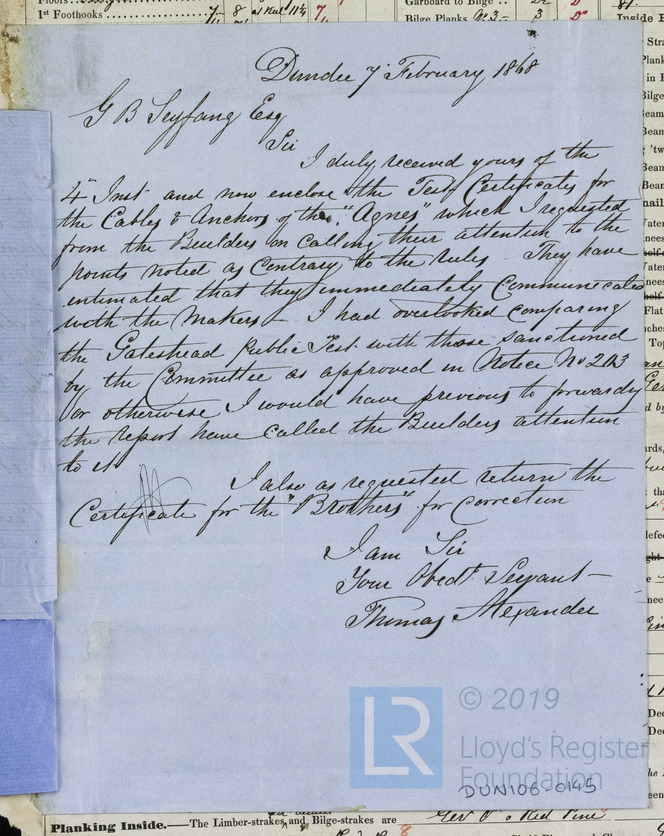 1st Foothooks
7
8
7
Garboard to Bilge
Bilge Planks No 3
3
Do
Inside
Dundee 7 February 1868
G B Seyfang Esq
Sir
I duly received yours of the
4th Inst and now enclose the Test Certificates for
the Cables & Anchors of the "Agnes" which I requested
from the Builders on calling their attention to the
points noted as Contrary to the rules. They have
entimated that they immediately Communicate
with the Makers. I had overlooked comparing
the Gateshead Public Test with those sanctioned
by the Committee as approved in Notice No 203
or otherwise I would have previous to forwardg
the report have called the Builders attention
to it
I also as requested return the
Certificate for the "Brothers" for Correction
I am Sir
Your Obedt Servant
Thomas Alexander
LR
© 2019
Lloyd's Register
Foundation
DUN106-0145
Planking Inside.—The Limber-strakes and Bilge-strakes are
Red Pine